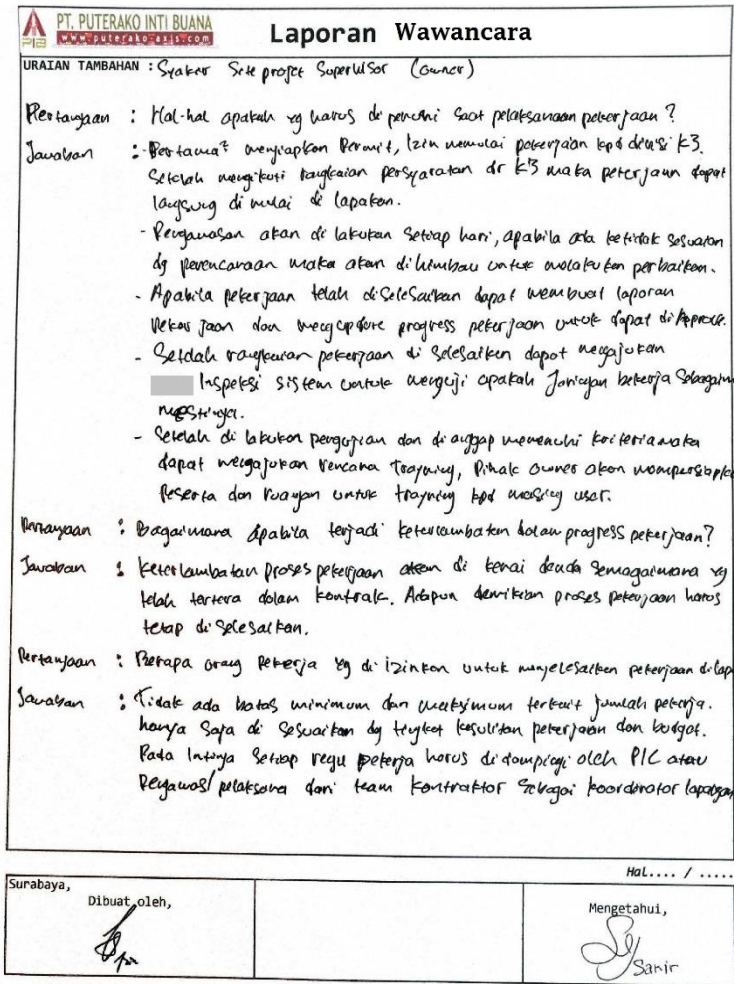 PT. PUTERAKO INTI BUANA
www.puterako-axis.com
PIB
Laporan Wawancara
URAIAN TAMBAHAN : Syaker Site projet Supervisor (Owner)
Pertanyaan : Hal-hal apakah yg harus di penuhi saat pelaksanaan pekerjaan ?
Jawaban : - Pertama² menyiapkan Permit, Izin memulai pekerjaan kpd divisi K3.
Setelah mengikuti rangkaian persyaratan dr K3 maka pekerjaan dapat
langsung di mulai di lapakan.
- Pengawasan akan di lakukan setiap hari, apabila ada ketidak sesuaian
dg perencanaan maka akan dihimbau untuk melakukan perbaiken.
- Apabila pekerjaan telah diselesaikan dapat membuat laporan
Pekerjaan dan mengupdate progress pekerjaan untuk dapat di Approve.
- Setelah rangkaian pekerjaan di selesaiken dapat mengajukan
Inspeksi sistem untuk menguji apakah Jaringan bekerja sebagaim
mestinya.
- Setelah di lakukan pengujian dan di anggap memenuhi kriteria maka
dapat mengajukan rencana Trayning, Pihak owner akan mempersiapka
Peserta dan ruangan untuk trayning kpd masing user.
Pertanyaan : Bagaimana apabila terjadi keterlambaten dalam progress pekerjaan?
Jawaban : Keterlambatan proses pekerjaan akan di kenai denda semagaimana yg
telah tertera dalam kontrak. Adapun demikian proses pekerjaan harus
tetap di selesaikan.
Pertanyaan : Berapa orang Pekerja yg di izinkan untuk menyelesaiken pekerjaan dilap
Jawaban : Tidak ada batas minimum dan maksimum terkait jumlah pekerja.
hanya saja di sesuaikan dg tingket kesulitan pekerjaan dan budget.
Pada Intinya setiap regu pekerja harus didampingi oleh PIC atau
Pengawas/pelaksana dari team kontraktor sebagai koordinator lapangan
Hal.... / .....
Surabaya,
Dibuat oleh,
Mengetahui,
Sanir